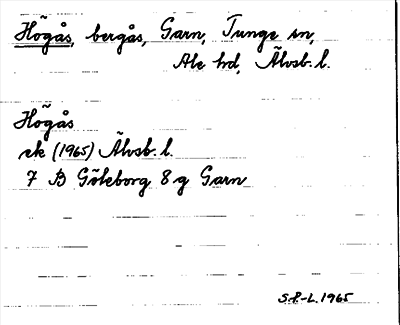 Högås, bergås, Garn, Tunge sn,
Ale hd, Älvsb. l.
Högås
ek (1965) Älvsb. l.
7 B Göteborg 8 g Garn
S.P-L. 1965